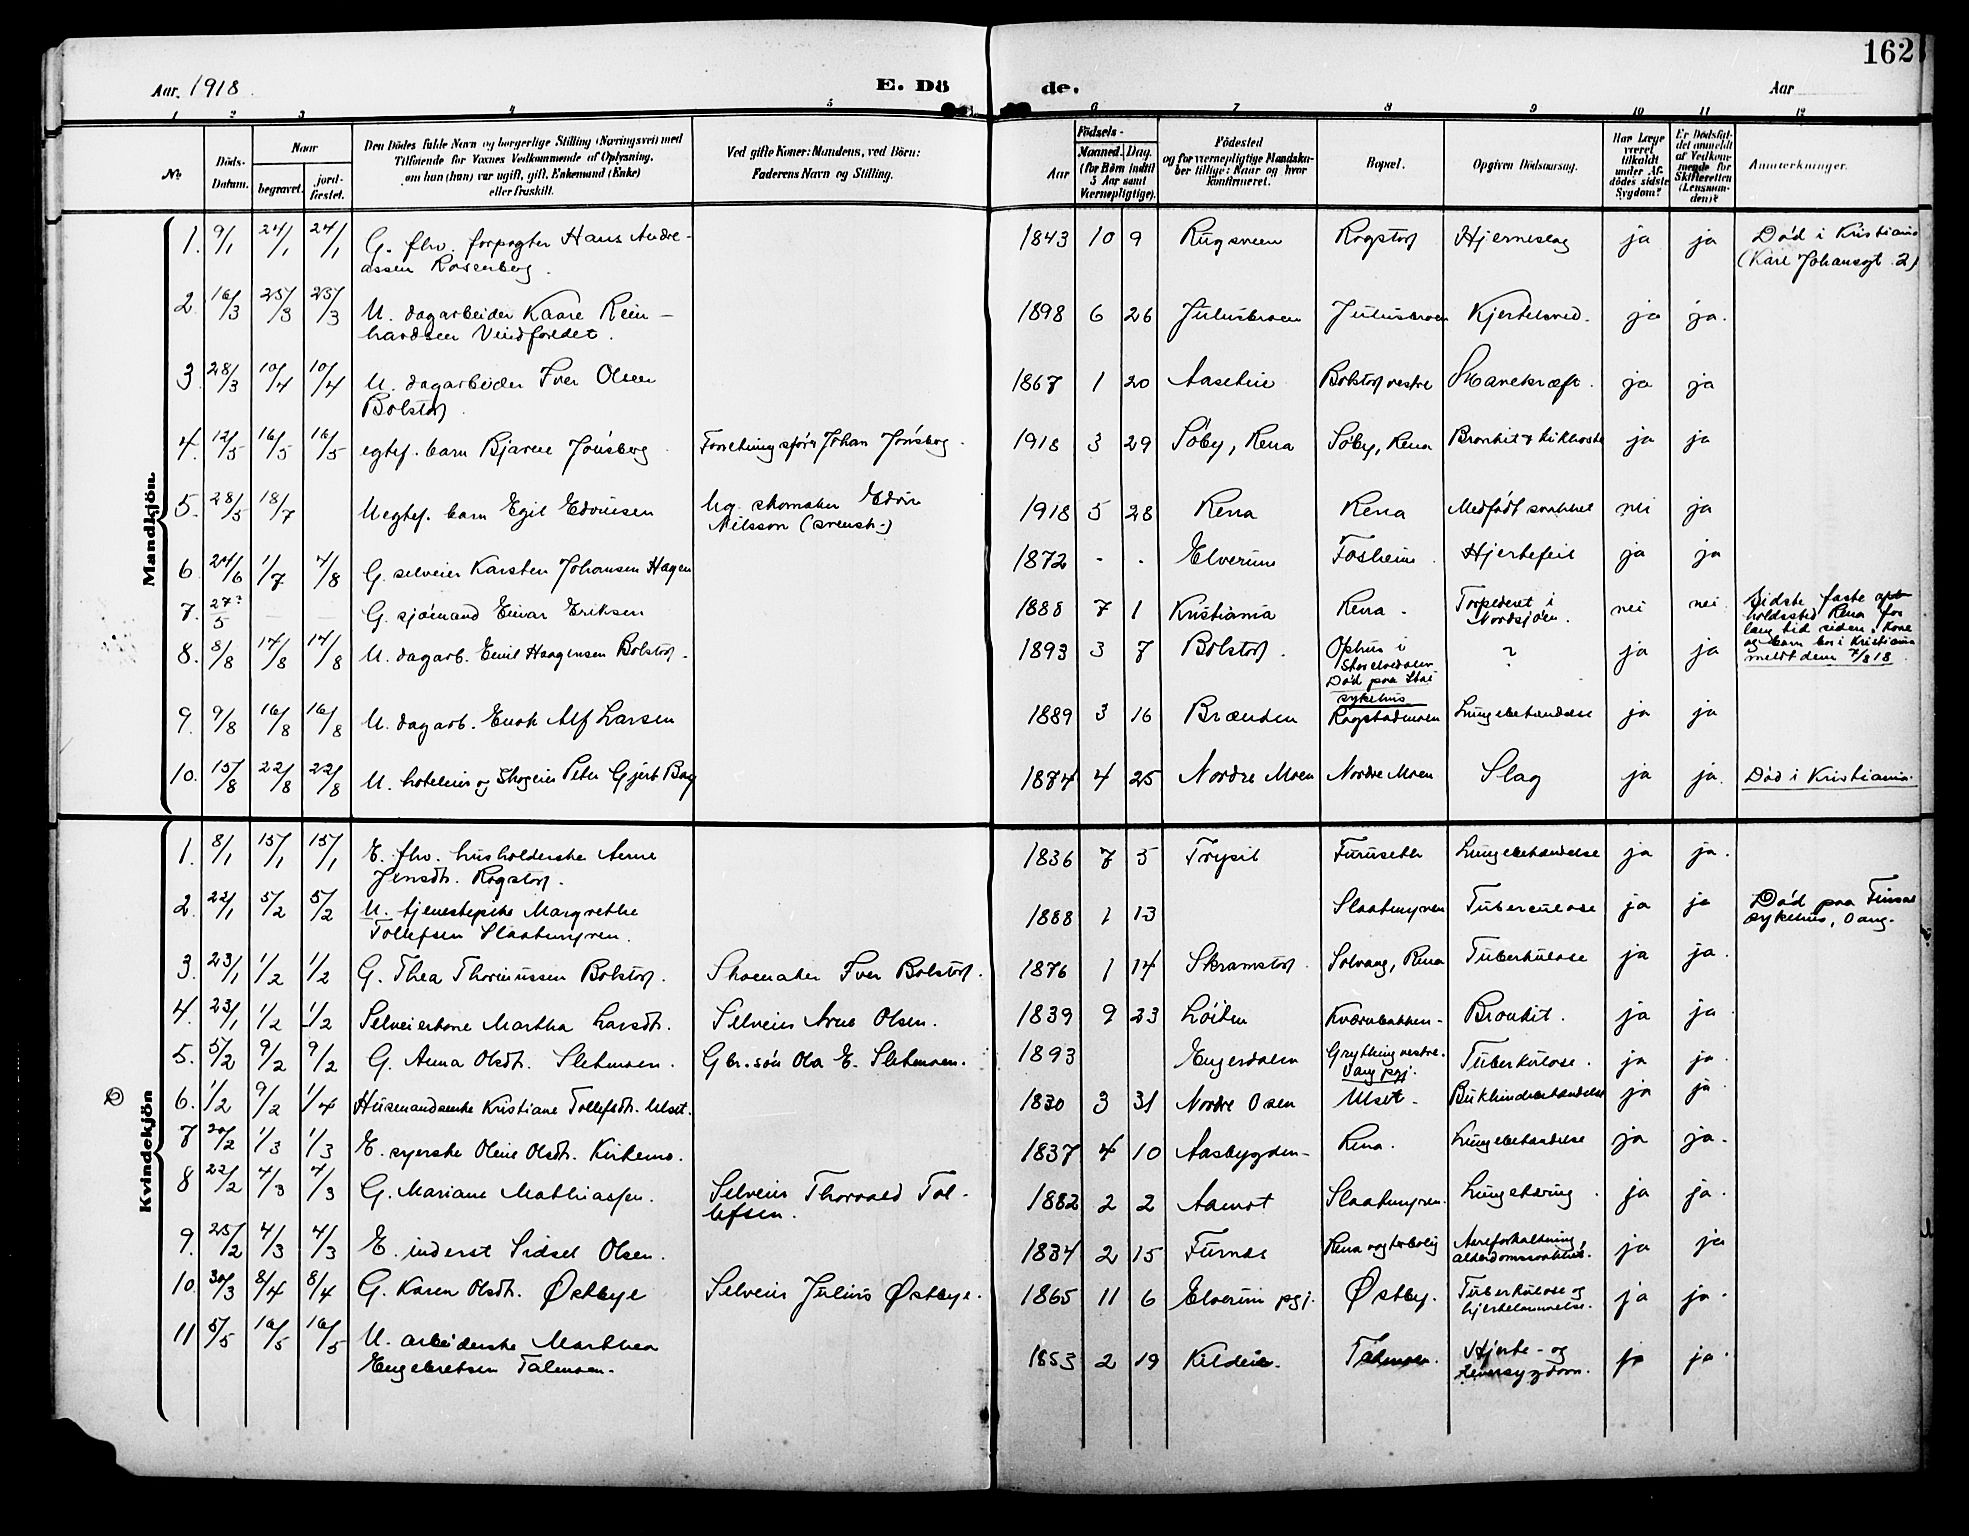 162
Aar. 1918.
E. Dö de.
Aar
1 2 3 4 5 6 7 8 9 10 11 12
No
Döds-Datum.
Naar
begravet.
jord-fæstet.
Den Dödes fulde Navn og borgerlige Stilling (Næringsvei) med
Tilföiende for Voxnes Vedkommende af Oplysning,
om han (hun) var ugift, gift, Enkemand (Enke)
eller fraskilt.
Ved gifte Koner: Mandens, ved Börn:
Faderens Navn og Stilling.
Födsels-
Aar
Maaned. Dag.
(for Börn indtil
5 Aar samt
Værnepligtige).
Födested
og for værnepligtige Mandska-
ber tillige: Naar og hvor
konfirmeret.
Bopæl.
Opgiven Dödsaarsag.
Har Læge
været
tilkaldt
under Af-
dödes sidste
Sygdom?
Er Dödsfal-
det anmeldt
af Vedkom-
mende for
Skifteretten
(Lensman-
den)?
Anmærkninger.
Mandkjön.
1. 9/1 24/1 24/1 G. fhv. forpagter Hans Andre-
assen Rosenberg. 1843 10 9 Rugsveen Rogstad Hjerneslag ja ja Død i Kristiania
(Karl Johansgt. 2)
2 16/3 25/3 25/3 U. dagarbeider Kaare Rein-
hardsen Vindfoldet. 1898 6 26 Julusmoen Julusmoen ja ja.
3. 28/3 10/4 10/4 U. dagarbeider Iver Olsen
Bolstad. 1867 1 20 Aaseteie Bolstad vestre Mavekræft. ja ja
4. 12/5 16/5 16/5 egtef. barn Bjarne Jønsberg Forretningsfører Johan Jønsberg. 1918 3 29 Søby, Rena Søby, Rena Bronkit & kikhoste ja ja
5. 28/5 18/7 Uegtef. barn Egil Edvinsen Ug. skomaker Edvin
Nilsson (svensk-) 1918 5 28 Rena Rena Medfødt svakhet nei ja
6. 24/6 1/7 4/8 G. selveier Karsten Johansen Hagen 1872 - - Elverum Fosheim. Hjertefeil ja ja
7. 27?/5 — — G. sjømand Einar Eriksen 1888 7 1 Kristiania Rena. Torpederet i
Nordsjøen. nei nei Sidste faste op-
holdssted Rena for
lang tid siden. Kone
og barn bor i Kristiania
meldt dem 7/8 18
8. 8/8 14/8 14/8 U. dagarb. Emil Haagensen Bolstad. 1893 3 7 Bolstad. Ophus i
Storelvedalen
Død paa Stai
sykehus ? ja ja
9. 9/8 16/8 16/8 U. dagarb. Enok Alf Larsen 1889 3 16 Brænden Rogstadmoen Lungebetændelse ja ja
10. 15/8 22/8 22/8 U. hoteleier og Skogeier Peter Gjert Berg 1874 4 25 Nordre Moen Nordre Moen Slag ja ja. Død i Kristiania.
Kvindekjön
1. 8/1 15/1 15/1 E. fhv. husholderske Anne
Jensdtr. Rogstad. 1836 7 5 Trysil Furuseth Lungebetændelse ja ja.
2. 22/1 5/2 5/2 U. tjenestepike Margrethe
Tollefsen Slaatmyren. 1888 1 13 Slaatmyren Tuberculose ja ja Død paa
sykehus, Vang.
3. 23/1 1/2 1/2 G. Thea Thorinussen Bolstad. Skomaker Iver Bolstad. 1876 1 14 Skramstad. Solvang, Rena Tuberkulose ja ja.
4. 23/1 1/2 1/2 Selveierkone Martha Larsdtr. Selveier Arne Olsen. 1839 9 23 Løiten Kværnbakken. Bronkit. ja ja.
5. 5/2 9/2 9/2 G. Anna Olsdtr. Sletmoen. Gbr.søn Ola E. Sletmoen. 1893 Engerdalen Grytting vestre.
Vang pgj. Tuberkulose. ja ja.
6. 1/2 9/2 1/4 Husmandsenke Kristiane Tollefsdtr. Ulset. 1830 3 31 Nordre Osen Ulset. Bukhindebetændelse ja ja
7 20/2 1/3 1/3 E. syerske Oline Olsdtr. Kirkemo. 1837 4 10 Aasbygden Rena. Lungebetændelse ja ja.
8 22/2 4/3 4/3 G. Mariane Mathiassen. Selveier Thorvald Tol-
lefsen. 1882 2 2 Aamot Slaatmyren. Lungetæring. ja ja.
9. 25/2 4/3 4/3 E. inderst Sidsel Olsen. 1834 2 15 Furnes Aareforkalkning,
alderdomssvakhet. ja ja
10. 30/3 8/4 8/4 G. Karen Olsdtr. Østbye Selveier Julius Østbye. 1865 11 6 Elverum pgj. Østby. Tuberkulose og
hjertelammelse. ja ja.
11 5/5 16/5 16/5 U. arbeiderske Marthea
Engebretsen Talmoen. 1853 2 19 Kildeie. Talmoen. Hjerte- og
leversygdom. ja ja.